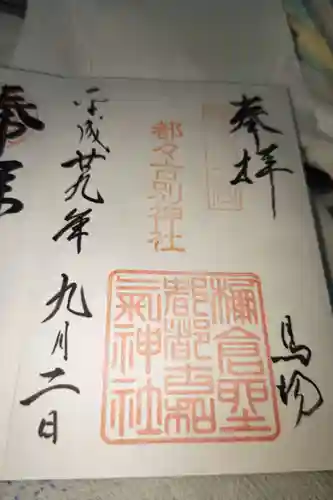 奉拝
馬場
都々古別神社
棚倉
都都古和
氣神社
平成廿九年 九月二日
奉拝